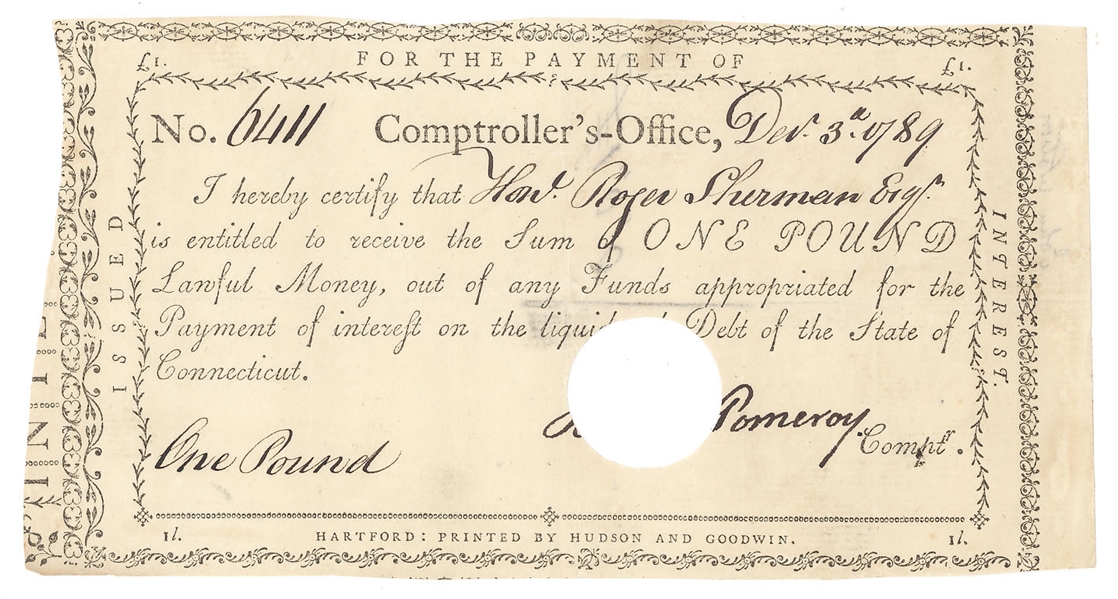 £1. FOR THE PAYMENT OF £1.
No. 6411 Comptroller's-Office, Decr. 3d. 1789
I hereby certify that Honl. Roger Sherman Esqr.
is entitled to receive the Sum of ONE POUND
Lawful Money, out of any Funds appropriated for the
Payment of intereſt on the liquid Debt of the State of
Connecticut.
Pomeroy Comptr.
One Pound
1l. HARTFORD: PRINTED BY HUDSON AND GOODWIN. 1l.
ISSUED
INTEREST.